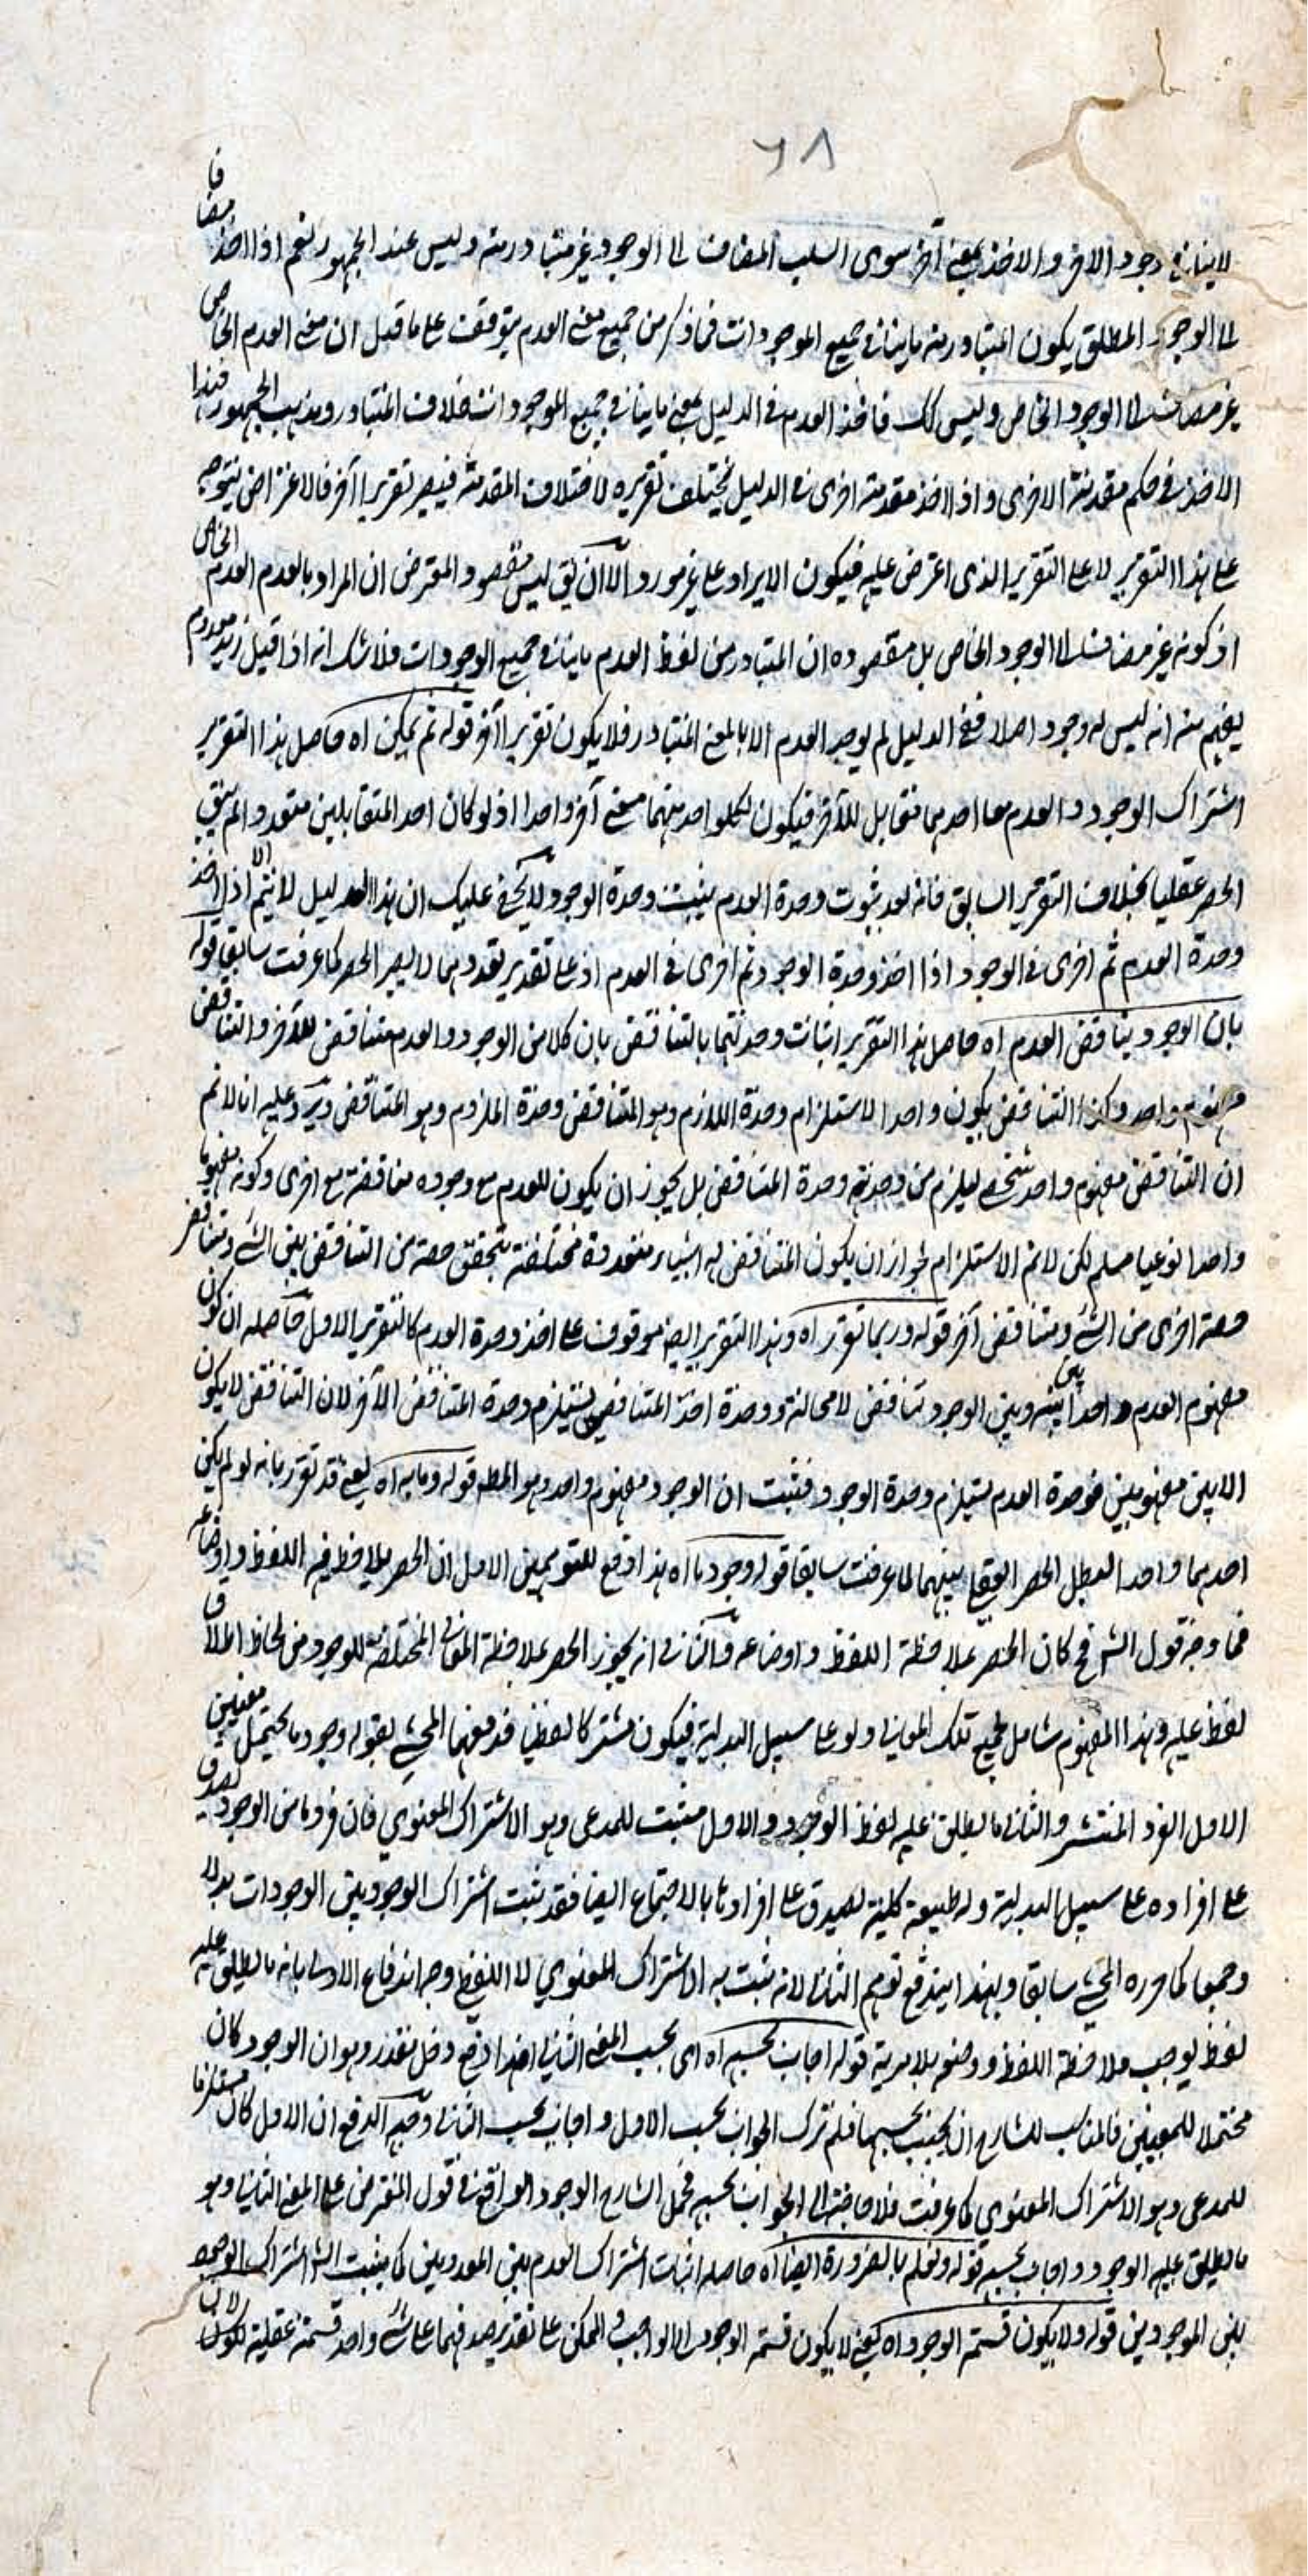 ٦٨
لاينافي وجود الاخر والاخذ بمعنى آخر سوى السلب المضاف الى الوجود غير متبادر منه وليس عند الجمهور نعم اذا اخذ مضافا
الى الوجود المطلق يكون المتبادر منه ماينافي جميع الموجودات فما ذكر من جميع معنى العدم يتوقف على ما قيل ان معنى العدم الخاص
غير مضاف الى الوجود الخاص وليس كك فاخذ العدم في الدليل بمعنى ماينافي جميع الموجودات خلاف المتبادر ومذهب الجمهور فهذا
الاخذ في حكم مقدمة الاخرى واذا اخذ مقدمة اخرى في الدليل يختلف تقريره لاختلاف المقدمة فيصير تقريرا آخر فالاعتراض يتوجه
على هذا التقرير لا على التقرير الذى اعترض عليه فيكون الايراد على غير مورده الا ان يق ليس مقصود المعترض ان المراد بالعدم العدم الخاص
اذ كونه غير مضاف الى الوجود الخاص بل مقصوده ان المتبادر من لفظ العدم ماينافي جميع الوجودات فلا شك انه اذا قيل زيد معدوم
يفهم منه انه ليس له وجود اصلا ففي الدليل لم يوجد العدم الا بالمعنى المتبادر فلا يكون تقريرا آخر قوله ثم يمكن اه حاصل هذا التقرير
اشتراك الوجود والعدم معا احدهما مقابل للآخر فيكون لكل واحد منهما معنى آخر واحدا اذ لو كان احد المتقابلين متعددا لم يبق
الحصر عقليا بخلاف التقرير السابق فانه بعد ثبوت وحدة العدم يثبت وحدة الوجود ولا يخفى عليك ان هذا الدليل لا يتم الا اذا اخذ
وحدة العدم ثم اخرى في الوجود اذا اخذ وحدة الوجود ثم اخرى في العدم اذ على تقدير تعددهما لا يصير الحصر كما عرفت سابقا قوله
بان الوجود يناقض العدم اه حاصل هذا التقرير اثبات وحدتهما بالتناقض بان كلا من الوجود والعدم متناقض للآخر والتناقض
مفهوم واحد وكذا التناقض يكون واحدا لاستلزام وحدة اللازم وهو المتناقض وحدة الملزوم وهو المتناقض ويرد عليه انا لا نم
ان التناقض مفهوم واحد شخصي ليلزم من وحدته وحدة المتناقض بل يجوز ان يكون للعدم مع وجوده مناقضة مع اخرى وكونه مفهوما
واحدا نوعيا مسلم لكن لا نم الاستلزام لجواز ان يكون المتناقض له اشياء متعددة مختلفة يتحقق حصة من التناقض بين الشئ ومتناقض
حصة اخرى من الشئ ومتناقض آخر قوله وربما تقرر اه وهذا التقرير ايضا موقوف على اخذ وحدة العدم كالتقرير الاول حاصله ان كون
مفهوم العدم واحدا بينه وبين الوجود تناقض لا محالة ووحدة احد المتناقضين يستلزم وحدة المتناقض الآخر لان التناقض لا يكون
الا بين مفهومين فوحدة العدم يستلزم وحدة الوجود فثبت ان الوجود مفهوم واحد وهو المط قوله وما به اه يعنى قد تقرر بانه لو لم يكن
احدهما واحدا لبطل الحصر العقلي بينهما لما عرفت سابقا قوله وجود ما اه هذا دفع للتوهمين الاول ان الحصر يلاحظ فيه اللفظ واوضاعه
فما وجه قول الش فح كان الحصر بملاحظة اللفظ واوضاعه والثاني انه يجوز الحصر بملاحظة المعاني المختلفة للوجود من لحاظ اطلاق
لفظ عليه وهذا المفهوم شامل لجميع تلك المعاني ولو على سبيل البدلية فيكون مشتركا لفظيا فدفعهما المحشى بقوله وجود ما يحتمل معنيين
الاول الفرد المنتشر والثاني ما يطلق عليه لفظ الوجود والاول مثبت للمدعى وهو الاشتراك المعنوي فان فردا ما من الوجود يصدق
على افراده على سبيل البدلية وله طبيعة كلية يصدق على افرادها بالاجتماع ايضا فقد يثبت اشتراك الوجود بين الوجودات بدلا
وجمعا كما حرره المحشى سابقا وبهذا يندفع توهم الثاني لانه يثبت به الاشتراك المعنوي لا اللفظي وجه اندفاع الاول بانه ما يطلق عليه
لفظ يوجب ملاحظة اللفظ ووضعه بلا مرية قوله اجاب بحسبه اه اى بحسب المعنى الثاني هذا دفع دخل مقدر وهو ان الوجود كان
محتملا للمعنيين فالمناسب للشارح ان يجيب بحسبهما فلم ترك الجواب بحسب الاول واجاب بحسب الثاني وجه الدفع ان الاول كان مستلزما
للمدعى وهو الاشتراك المعنوي كما عرفت فلا حاجة الى الجواب بحسبه فحمل الشارح الوجود الواقع في قول المعترض على المعنى الثاني وهو
ما يطلق عليه الوجود واجاب بحسبه قوله ونعلم بالضرورة ايضا اه حاصله اثبات اشتراك العدم بين المعدومين كما يثبت اشتراك الوجود
بين الموجودين قوله ولا يكون قسمة الوجود اه يعنى لا يكون قسمة الوجود الى الواجب والممكن على تقدير صدقهما على شئ واحد قسمة عقلية لان